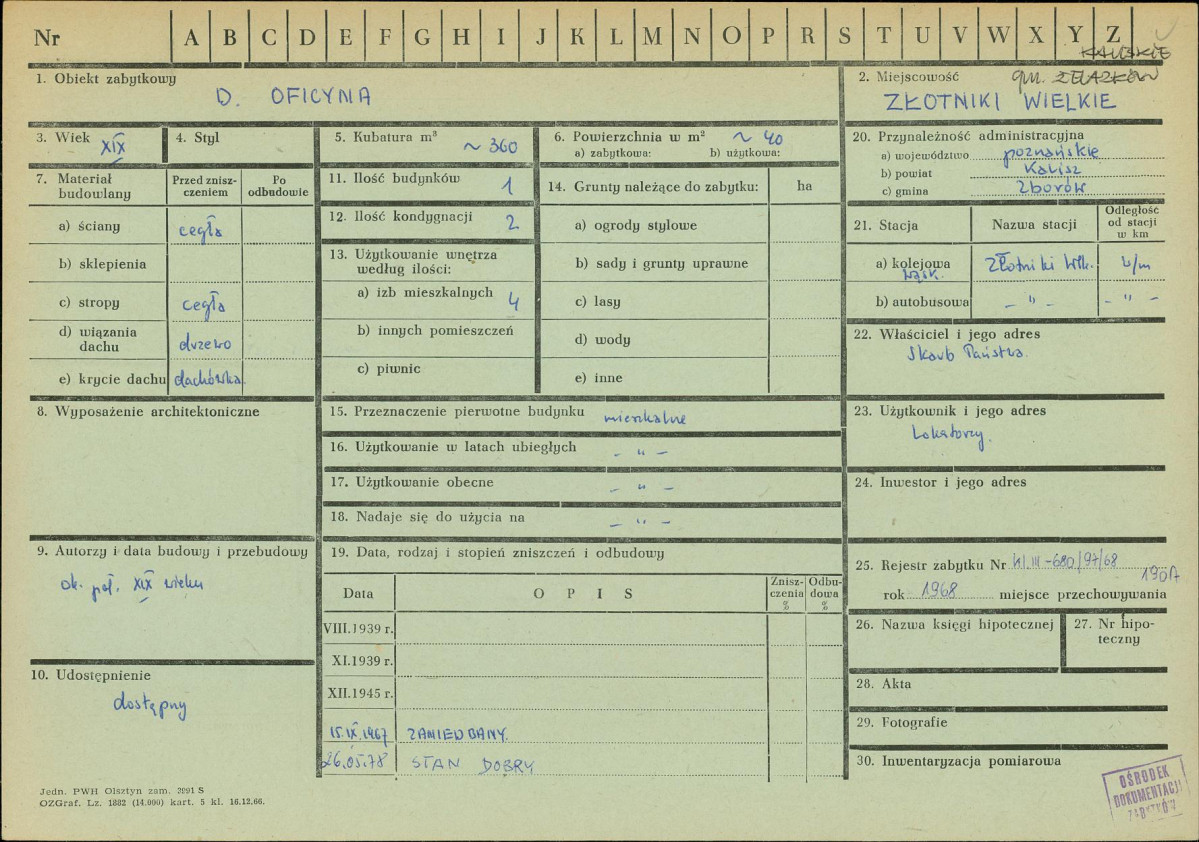 Nr A B C D E F G H I J K L M N O P R S T U V W X Y Z
KALISKIE
1. Obiekt zabytkowy
D. OFICYNA
2. Miejscowość gm. ŻELAZKÓW
ZŁOTNIKI WIELKIE
3. Wiek XIX
4. Styl
5. Kubatura m³ ~ 360
6. Powierzchnia w m² ~ 40
a) zabytkowa: b) użytkowa:
7. Materiał budowlany
Przed zniszczeniem
Po odbudowie
a) ściany cegła
b) sklepienia
c) stropy cegła
d) wiązania dachu drzewo
e) krycie dachu dachówka
8. Wyposażenie architektoniczne
9. Autorzy i data budowy i przebudowy
ok. poł. XIX wieku
10. Udostępnienie
dostępny
11. Ilość budynków 1
12. Ilość kondygnacji 2
13. Użytkowanie wnętrza
według ilości:
a) izb mieszkalnych 4
b) innych pomieszczeń
c) piwnic
14. Grunty należące do zabytku: ha
a) ogrody stylowe
b) sady i grunty uprawne
c) lasy
d) wody
e) inne
15. Przeznaczenie pierwotne budynku mieszkalne
16. Użytkowanie w latach ubiegłych - " -
17. Użytkowanie obecne - " -
18. Nadaje się do użycia na - " -
19. Data, rodzaj i stopień zniszczeń i odbudowy
Data OPIS Zniszczenia % Odbudowa %
VIII.1939 r.
XI.1939 r.
XII.1945 r.
15.IX.1967 ZANIEDBANY.
26.05.78 STAN DOBRY
20. Przynależność administracyjna
a) województwo poznańskie
b) powiat Kalisz
c) gmina Zborów
21. Stacja Nazwa stacji Odległość od stacji w km
a) kolejowa wąsk. Złotniki Wlk. w/m
b) autobusowa - " - - " -
22. Właściciel i jego adres
Skarb Państwa.
23. Użytkownik i jego adres
Lokatorzy.
24. Inwestor i jego adres
25. Rejestr zabytku Nr Kl.III-680/97/68
190A
rok 1968 miejsce przechowywania
26. Nazwa księgi hipotecznej
27. Nr hipoteczny
28. Akta
29. Fotografie
30. Inwentaryzacja pomiarowa
Jedn. PWH Olsztyn zam. 2991 S
OZGraf. Lz. 1882 (14.000) kart. 5 kl. 16.12.66.
OŚRODEK
DOKUMENTACJI
ZABYTKÓW